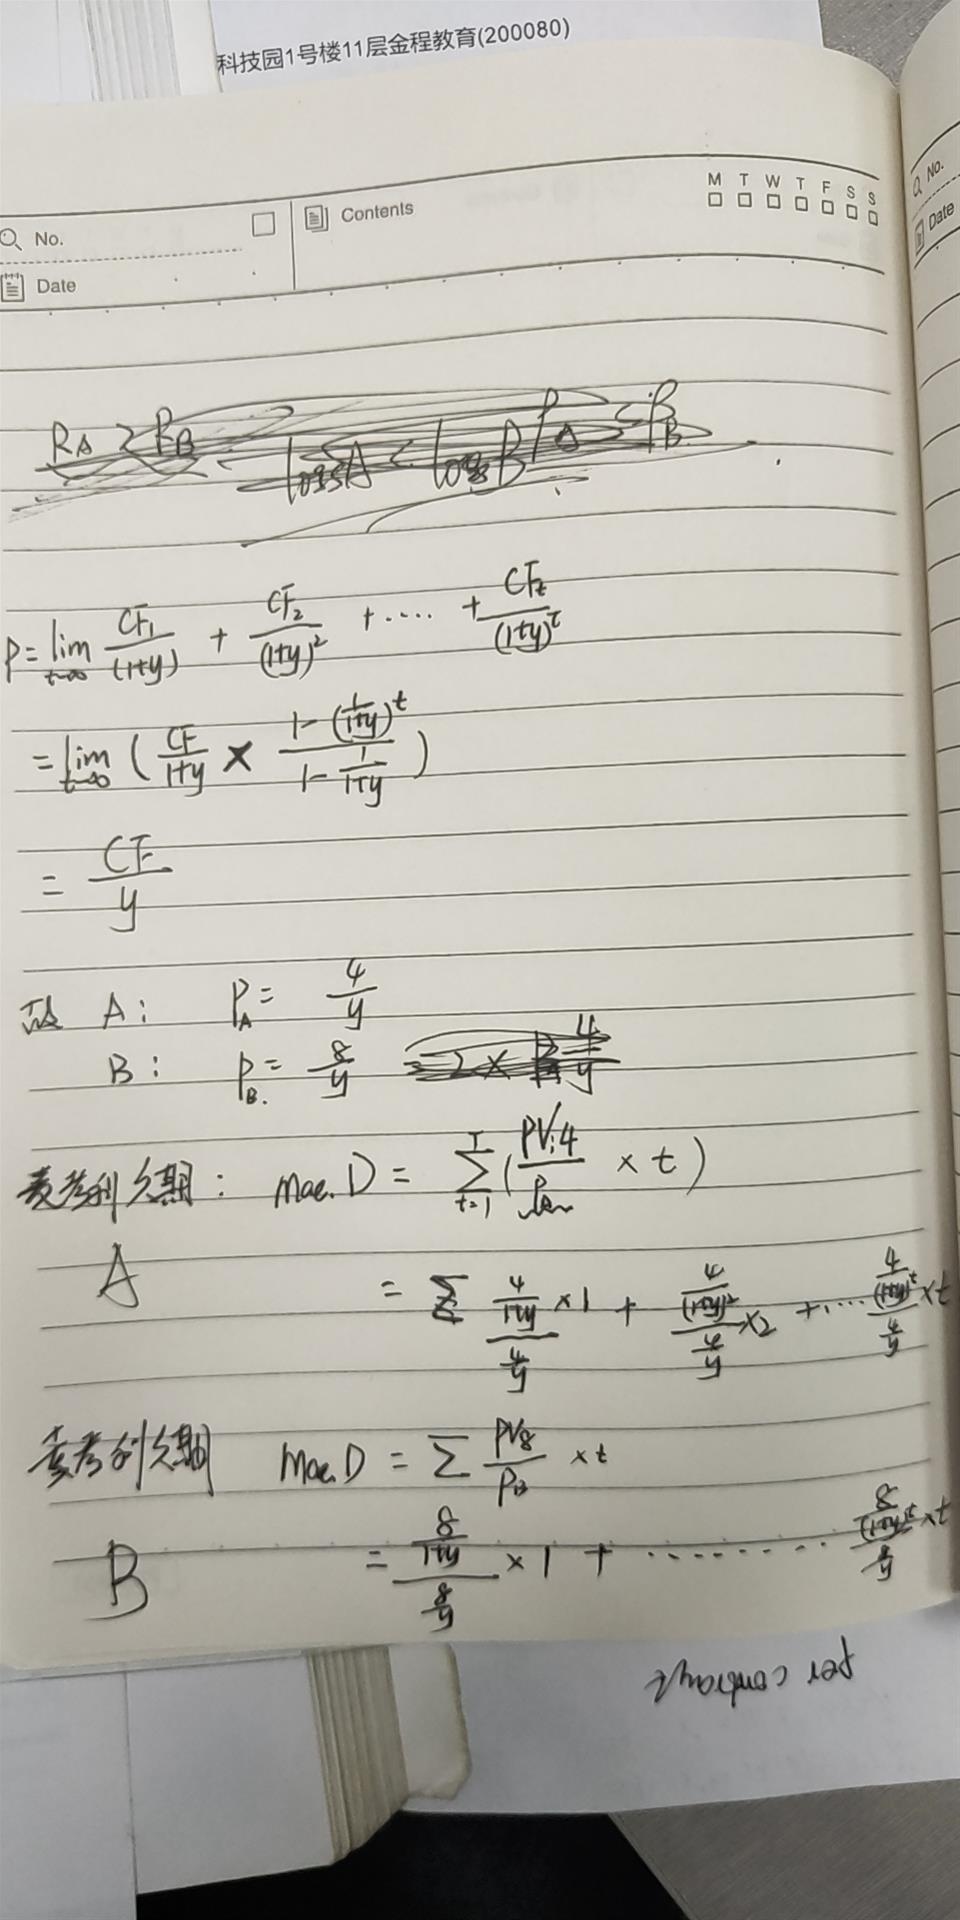 科技园1号楼11层金程教育(200080)
M T W T F S S
No.
Contents
No.
Date
Date
RA > RB lossA < lossB PA < PB
P = lim t→∞ CF1/(1+y) + CF2/(1+y)^2 + .... + CFt/(1+y)^t
= lim t→∞ ( CF/1+y × 1-(1/1+y)^t / 1-1/1+y )
= CF/y
故 A: PA = 4/y
B: PB. = 8/y = 2 × 4/y
麦考利久期: mac.D = Σ t=1 T ( PV:4 / × t )
A = Σ 4/1+y / 4/y ×1 + 4/(1+y)^2 / 4/y ×2 + .... 4/(1+y)^t / 4/y ×t
麦考利久期 mac.D = Σ PV8/PB × t
B = 8/1+y / 8/y × 1 + ........ 8/(1+y)^t / 8/y ×t
per contract